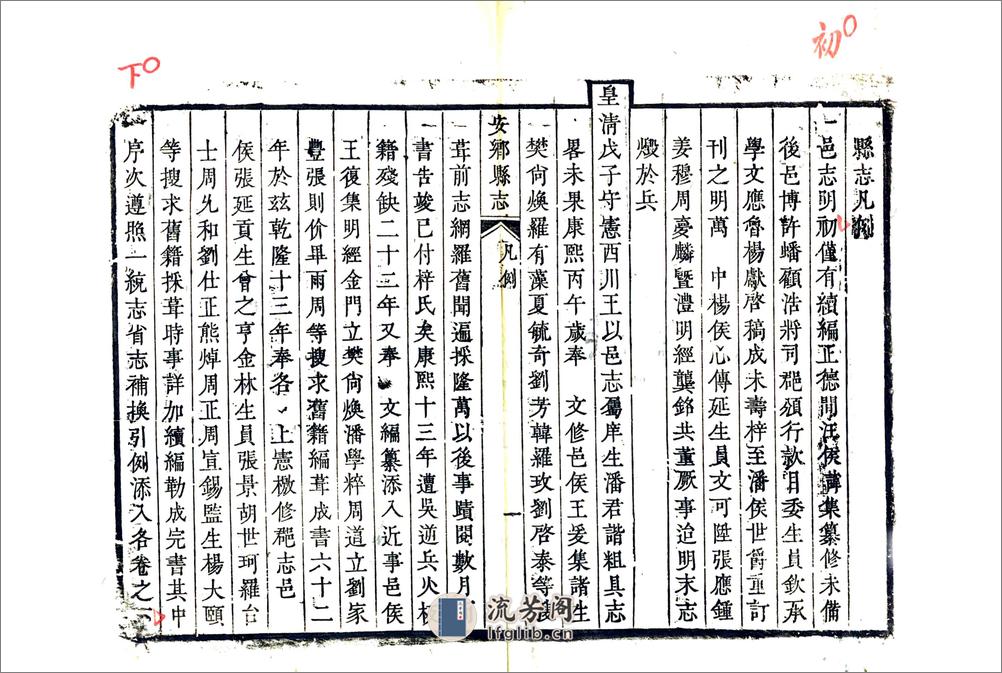 初
下
縣志凡例
一邑志明初僅有續編正德間汪侯講集纂修未備
後邑博許蟠顧浩將司郡頒行款目委生員欽承
學文應魯楊獻啓稿成未壽梓至潘侯世爵重訂
刊之明萬 中楊侯心傳延生員文可陞張應鍾
姜穆周慶麟暨澧明經龔銘共董厥事迨明末志
燬於兵
皇清戊子守憲西川王以邑志屬庠生潘君諧粗具志
畧未果康熙丙午歲奉 文修邑侯王爰集諸生
樊尚煥羅有藻夏毓奇劉芳韓羅玫劉啓泰等
安鄉縣志 凡例 一
一葺前志網羅舊聞遍採隆萬以後事蹟閱數月
書告竣已付梓氏矣康熙十三年遭吳逆兵火板
籍殘缺二十二年又奉 文編纂添入近事邑侯
王復集明經金門立樊尚煥潘學粹周道立劉家
豐張則价畢雨周等搜求舊籍編葺成書六十二
年於玆乾隆十三年奉各 上憲檄修郡志邑
侯張延貢生曾之亨金林生員張景胡世珂羅台
士周允和劉仕正熊焯周正周宣錫監生楊大頤
等搜求舊籍採葺時事詳加續編勒成完書其中
一序次遵照一統志省志補換引例添入各卷之
流芳閣
lfglib.cn